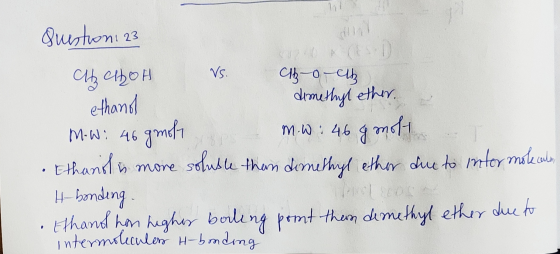 Question: 23
CH3 CH2OH vs. CH3-O-CH3
ethanol dimethyl ether.
M.W: 46 gmol-1 M.W: 46 g mol-1
• Ethanol is more soluble than dimethyl ether due to intermolecular
H-bonding.
• Ethanol has higher boiling point than dimethyl ether due to
intermolecular H-bonding